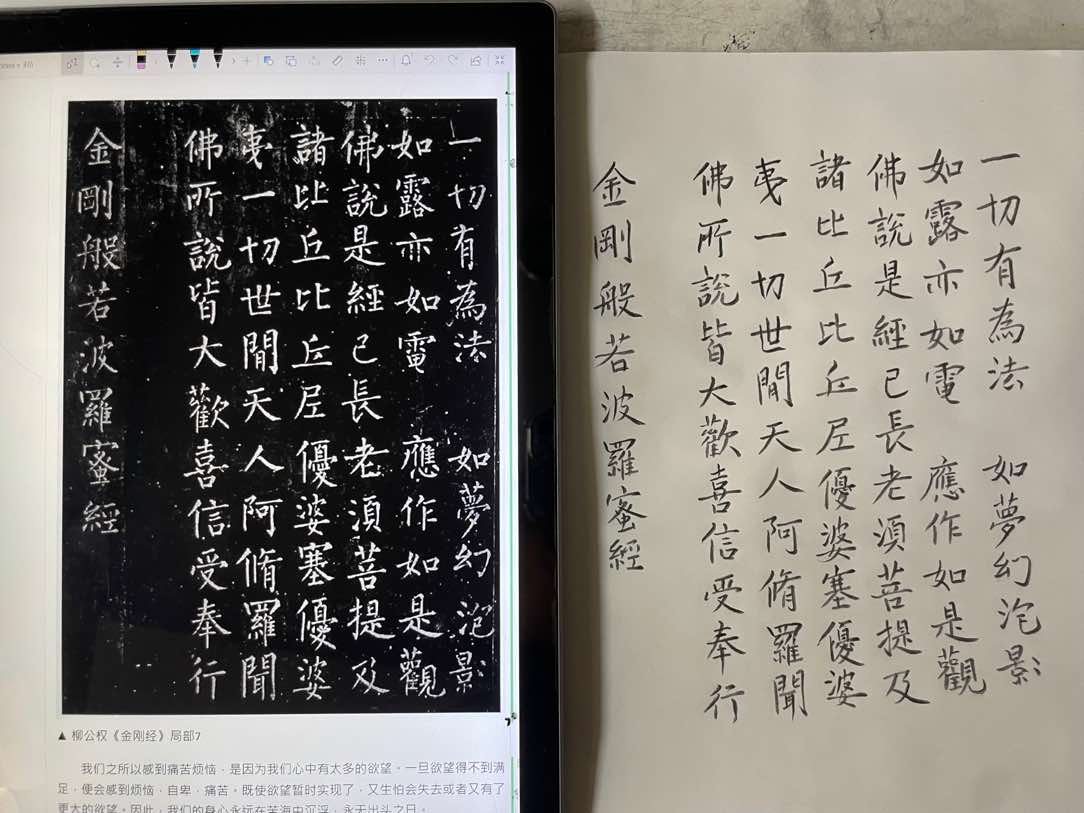 一切有為法 如夢幻泡影
如露亦如電 應作如是觀
佛說是經已長老湏菩提及
諸比丘比丘尼優婆塞優婆
夷一切世間天人阿脩羅聞
佛所說皆大歡喜信受奉行
金剛般若波羅蜜經
▲ 柳公权《金刚经》局部7
我们之所以感到痛苦烦恼，是因为我们心中有太多的欲望。一旦欲望得不到满
足，便会感到烦恼，自卑，痛苦。既使欲望暂时实现了，又生怕会失去或者又有了
更大的欲望。因此，我们的身心永远在苦海中沉浮，永无出头之日。
一切有為法 如夢幻泡影
如露亦如電 應作如是觀
佛說是經已長老湏菩提及
諸比丘比丘尼優婆塞優婆
夷一切世間天人阿脩羅聞
佛所說皆大歡喜信受奉行
金剛般若波羅蜜經